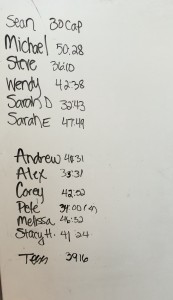 Sean 30 CAP
Michael 50:28
Steve 36:10
Wendy 42:38
Sarah D 32:43
Sarah E 47:49
Andrew 48:31
Alex 38:31
Corey 42:52
Pete 34:00
Melissa 46:32
Stacy H. 41 24
39 16